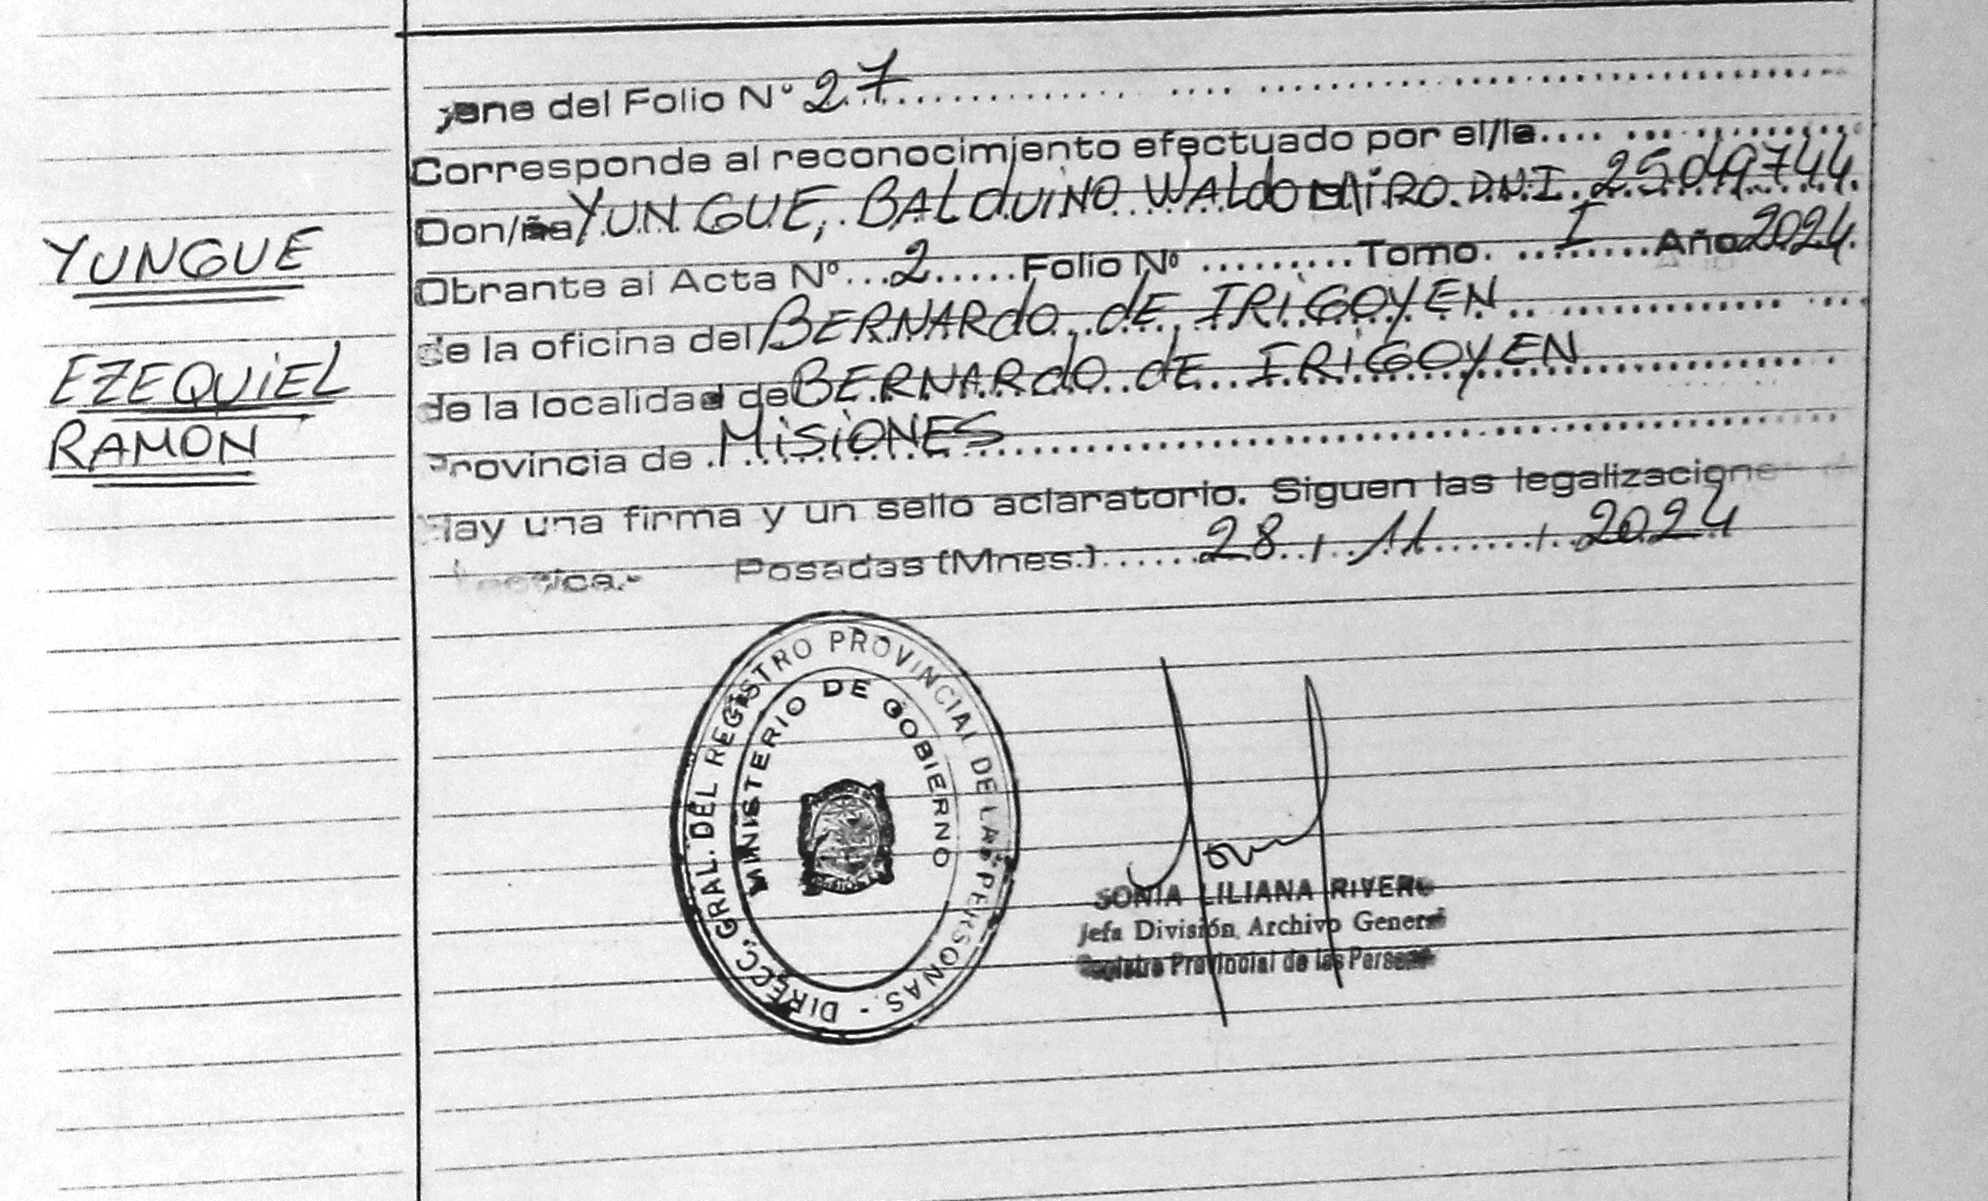 YUNGUE
EZEQUIEL
RAMON
del Folio N° 27
Corresponde al reconocimiento efectuado por el/la
Don/ña YUNGUE, BALDUINO WALDOMIRO. D.N.I. 25.049.744
Obrante al Acta N° 2 Folio N° Tomo. I Año 2024.
de la oficina del BERNARDO DE IRIGOYEN
de la localidad de BERNARDO DE IRIGOYEN
Provincia de MISIONES
Hay una firma y un sello aclaratorio. Siguen las legalizaciones
Posadas (Mnes.) 28 / 11 / 2024
DIRECC. GRAL. DEL REGISTRO PROVINCIAL DE LAS PERSONAS. -
MINISTERIO DE GOBIERNO
SONIA LILIANA RIVERO
Jefa División Archivo General
Registro Provincial de las Personas